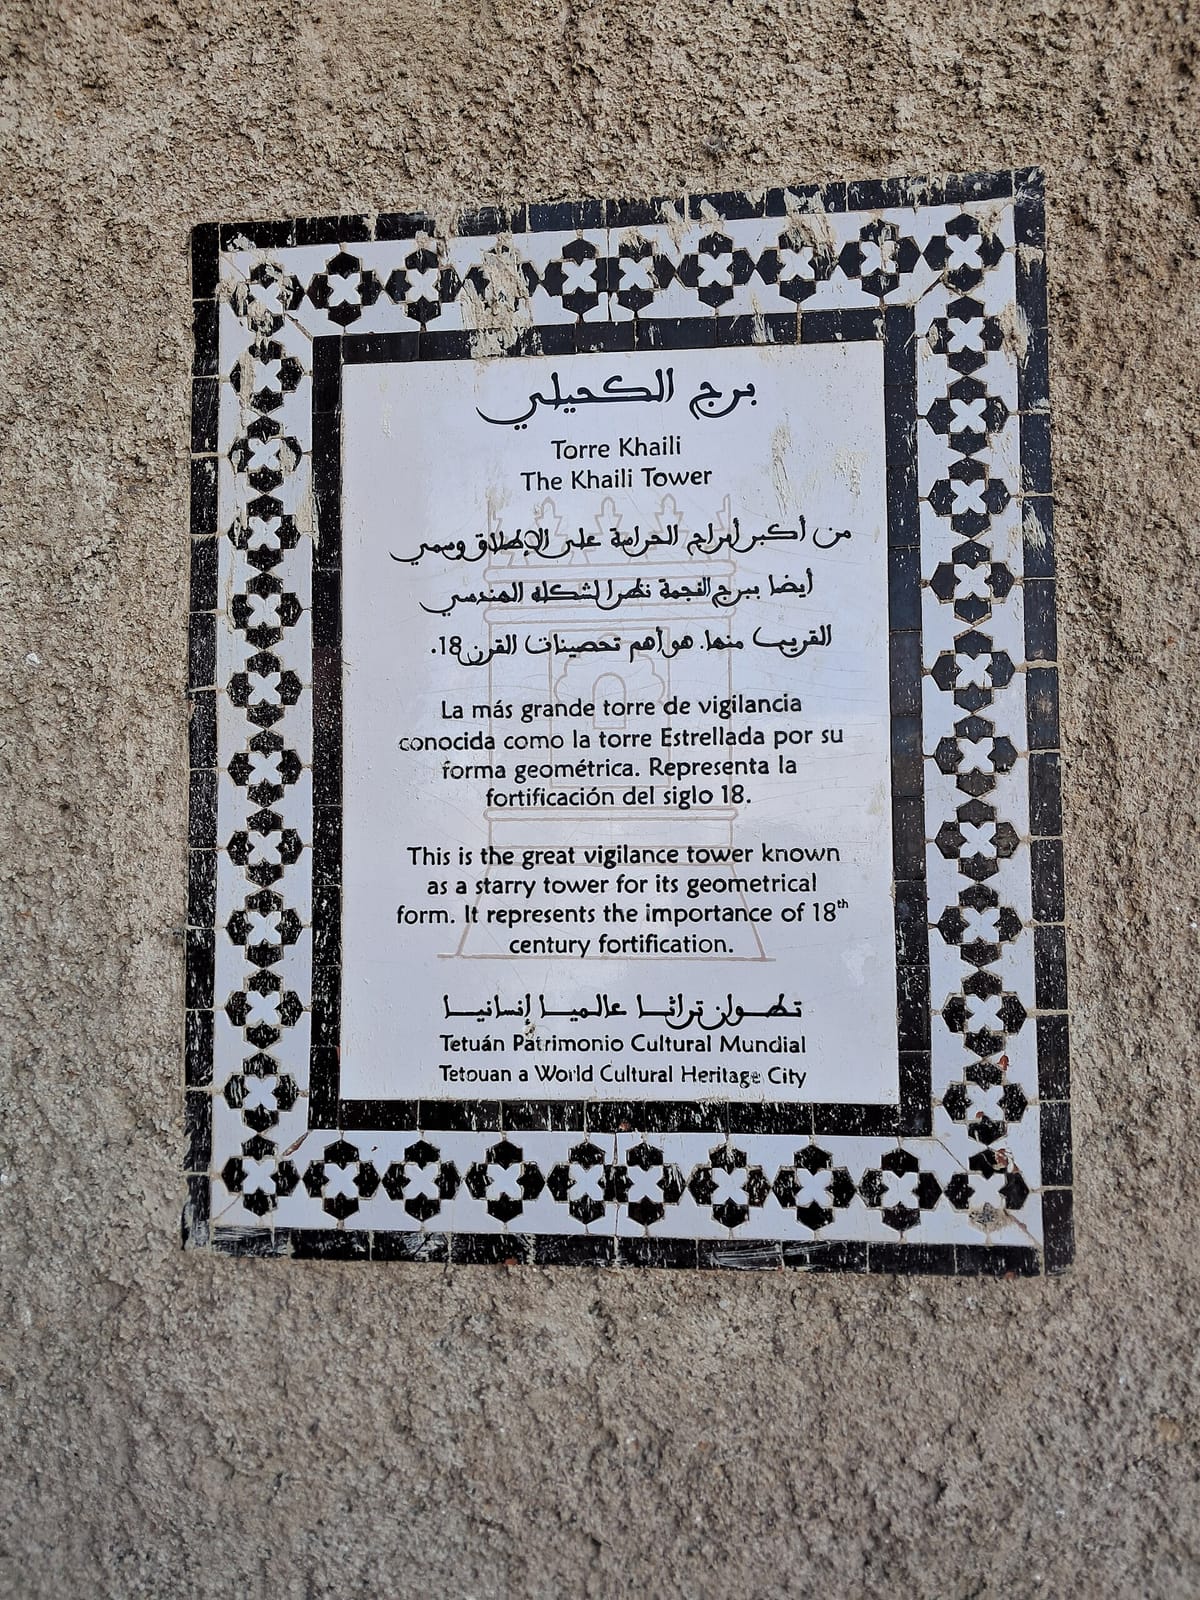 برج الكحيلي
Torre Khaili
The Khaili Tower
من أكبر أبراج الحراسة على الإطلاق وسمي
أيضا ببرج النجمة نظرا لشكله الهندسي
القريب منها. هو أهم تحصينات القرن 18.
La más grande torre de vigilancia
conocida como la torre Estrellada por su
forma geométrica. Representa la
fortificación del siglo 18.
This is the great vigilance tower known
as a starry tower for its geometrical
form. It represents the importance of 18th
century fortification.
تطوان تراثا عالميا إنسانيا
Tetuán Patrimonio Cultural Mundial
Tetouan a World Cultural Heritage City